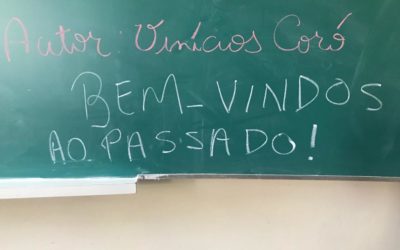 Autor: Vinícios Coró
BEM-VINDOS
AO PASSADO!